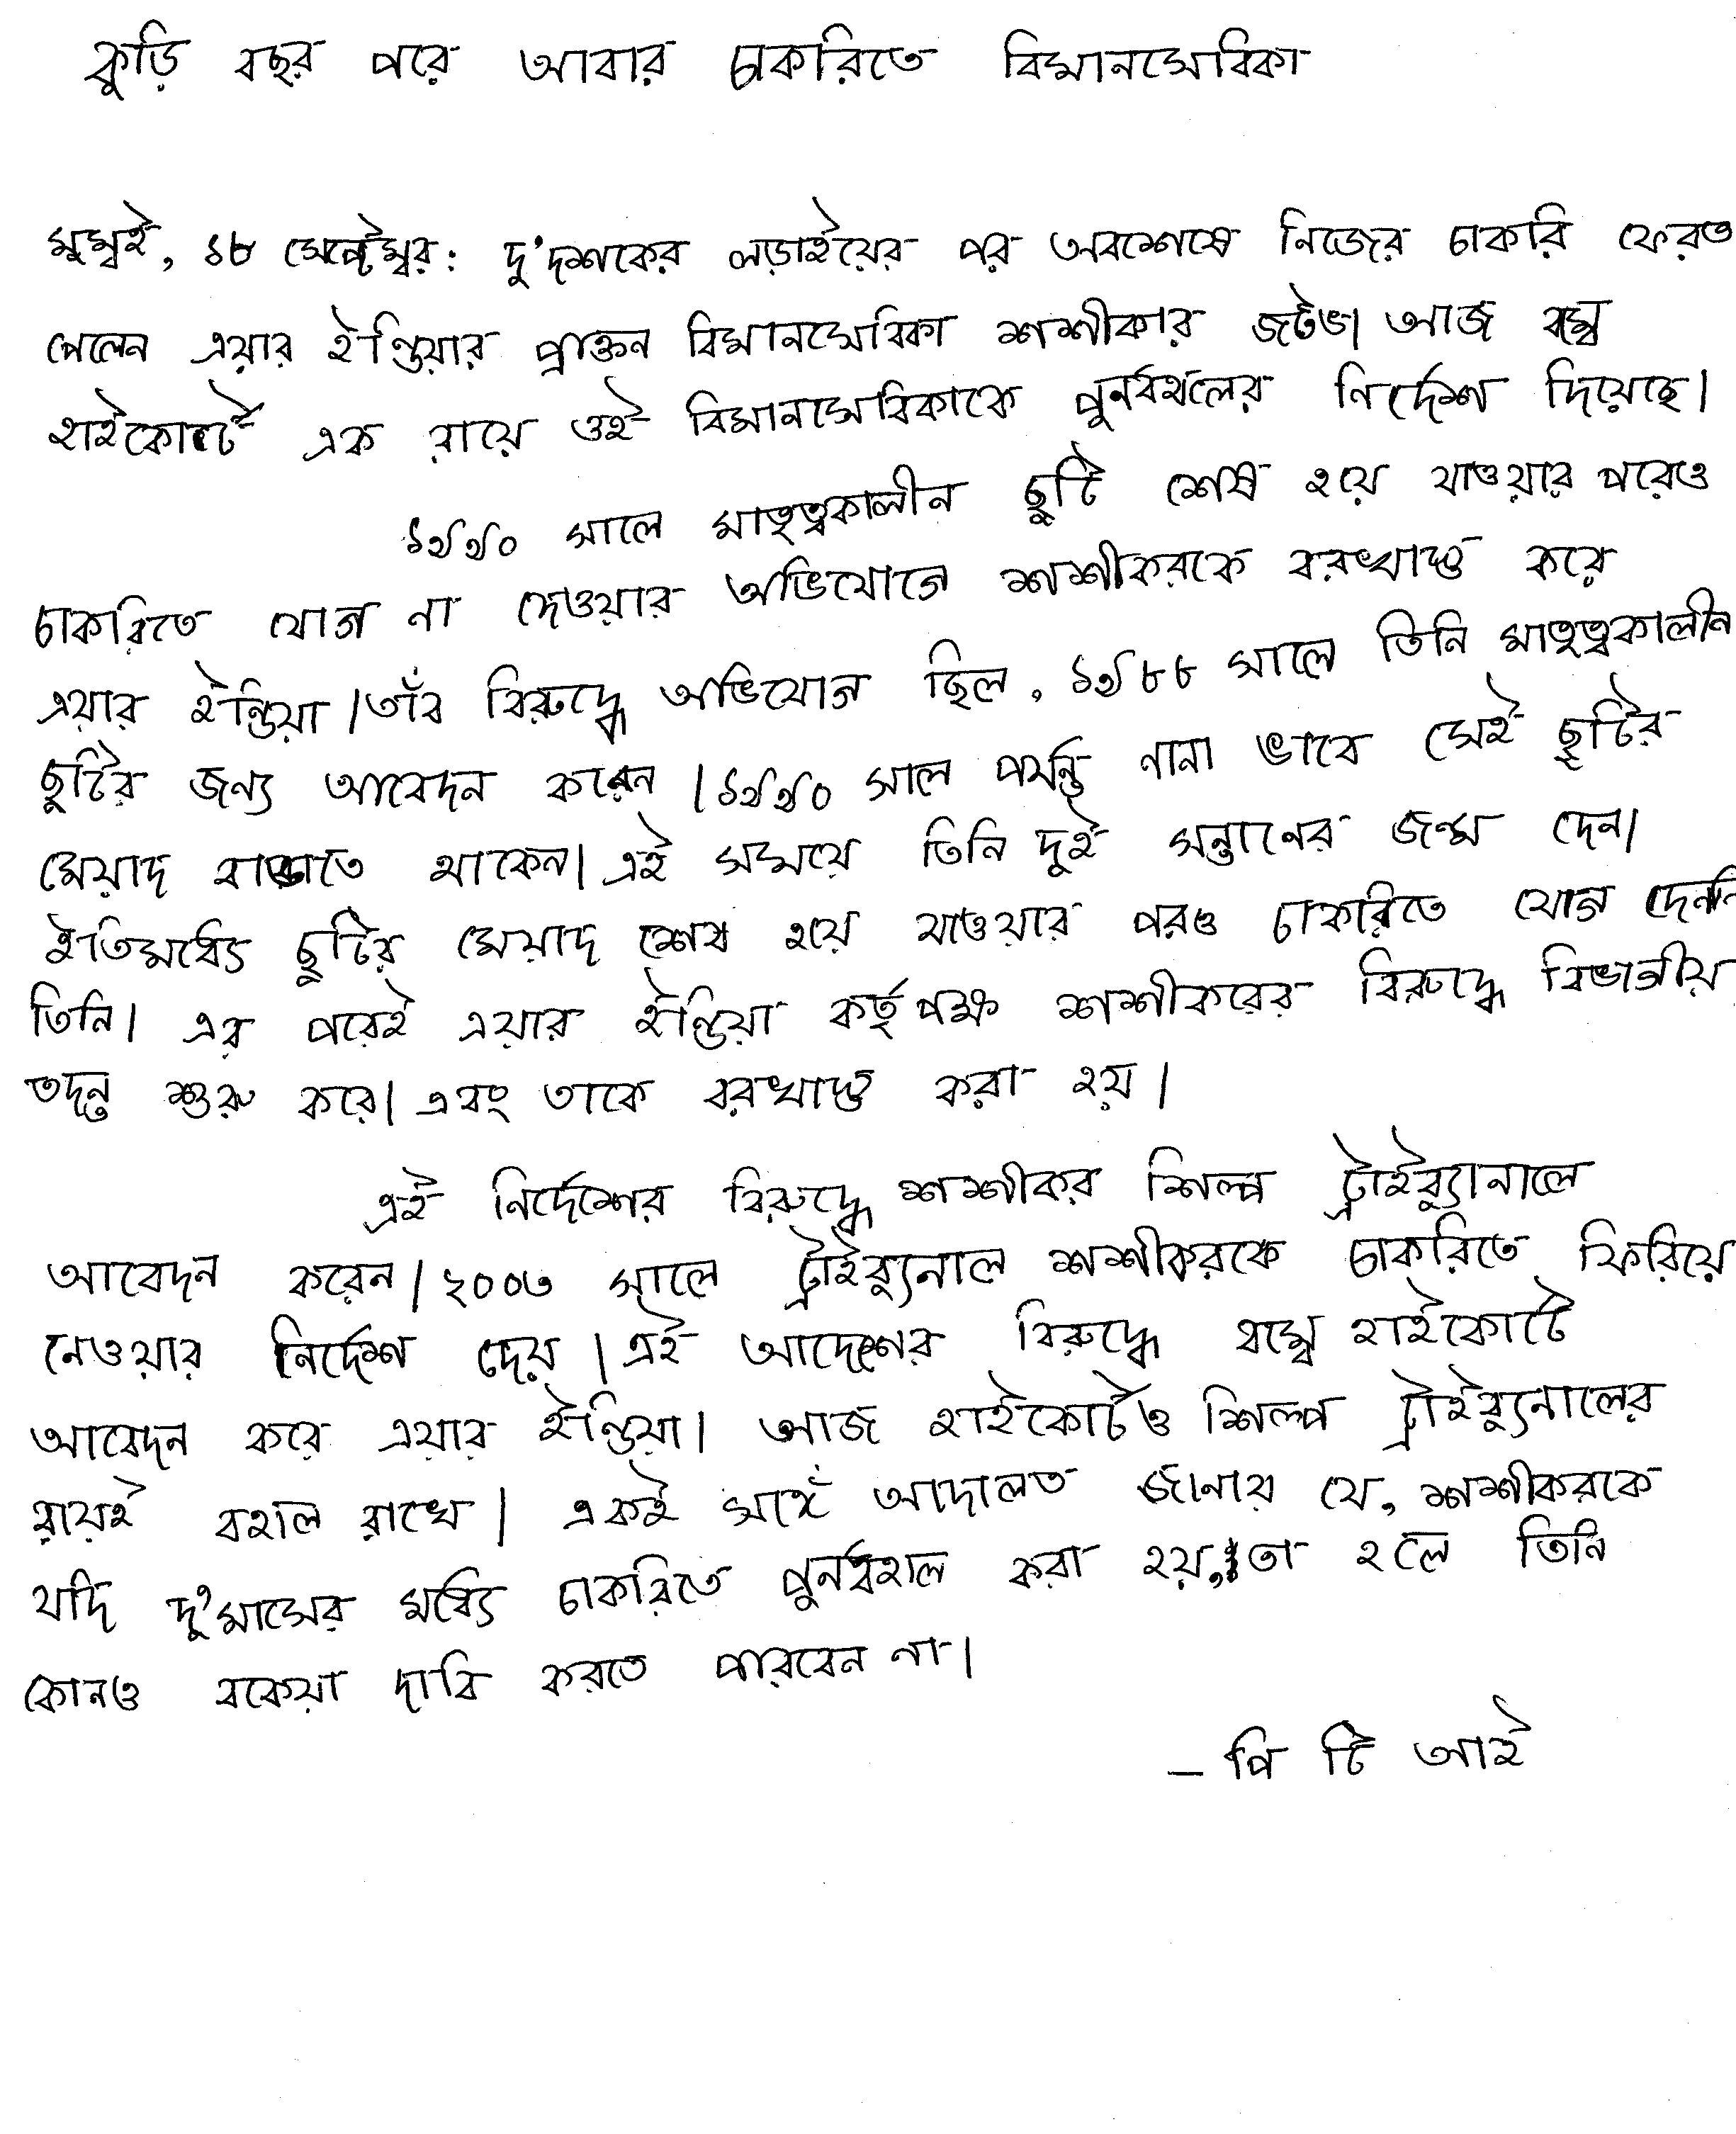 কুড়ি বছর পরে আবার চাকরিতে বিমানসেবিকা
মুম্বই, ১৮ সেপ্টেম্বর: দু'দশকের লড়াইয়ের পর অবশেষে নিজের চাকরি ফেরত
পেলেন এয়ার ইণ্ডিয়ার প্রাক্তন বিমানসেবিকা শশীকার জটভ। আজ বম্বে
হাইকোর্টে এক রায়ে ওই বিমানসেবিকাকে পুনর্বহালের নির্দেশ দিয়েছে।
১৯৯০ সালে মাতৃত্বকালীন ছুটি শেষ হয়ে যাওয়ার পরেও
চাকরিতে যোগ না দেওয়ার অভিযোগে শশীকরকে বরখাস্ত করে
এয়ার ইন্ডিয়া। তাঁর বিরুদ্ধে অভিযোগ ছিল, ১৯৮৮ সালে তিনি মাতৃত্বকালীন
ছুটির জন্য আবেদন করেন। ১৯৯০ সাল পর্যন্ত নানা ভাবে সেই ছুটির
মেয়াদ বাড়াতে থাকেন। এই সময়ে তিনি দুই সন্তানের জন্ম দেন।
ইতিমধ্যে ছুটির মেয়াদ শেষ হয়ে যাওয়ার পরও চাকরিতে যোগ দেননি
তিনি। এর পরেই এয়ার ইন্ডিয়া কর্তৃপক্ষ শশীকরের বিরুদ্ধে বিভাগীয়
তদন্ত শুরু করে। এবং তাকে বরখাস্ত করা হয়।
এই নির্দেশের বিরুদ্ধে শশীকর শিল্প ট্রাইব্যুনালে
আবেদন করেন। ২০০৩ সালে ট্রাইব্যুনাল শশীকরকে চাকরিতে ফিরিয়ে
নেওয়ার নির্দেশ দেয়। এই আদেশের বিরুদ্ধে বম্বে হাইকোর্টে
আবেদন করে এয়ার ইন্ডিয়া। আজ হাইকোর্টও শিল্প ট্রাইব্যুনালের
রায়ই বহাল রাখে। একই সঙ্গে আদালত জানায় যে, শশীকরকে
যদি দু'মাসের মধ্যে চাকরিতে পুনর্বহাল করা হয়, তা হলে তিনি
কোনও বকেয়া দাবি করতে পারবেন না।
– পি টি আই